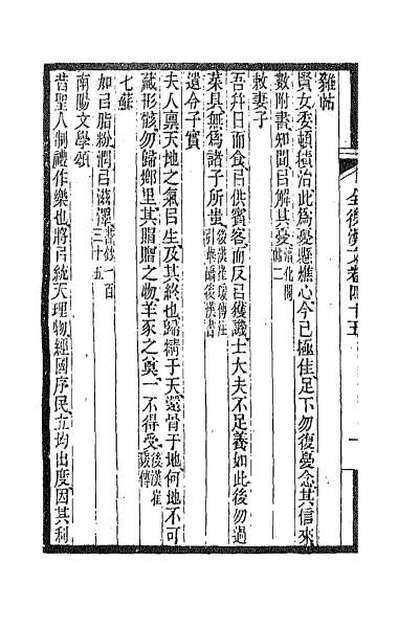 全後漢文卷四十五
雜帖
賢女委頓積治此爲憂懸憔心今已極佳足下勿復憂念其信來
數附書知聞㠯解其憂淳化閣帖二
敕妻子
吾并日而食㠯供賓客而反㠯獲譏士大夫不足養如此後勿過
菜具無爲諸子所蚩後漢崔瑗傳注引華嶠後漢書
遺令子寔
夫人稟天地之氣㠯生及其終也歸精于天還骨于地何地不可
藏形骸勿歸鄉里其賵贈之物羊豕之奠一不得受後漢崔瑗傳
七蘇
加㠯脂粉潤㠯滋澤書鈔一百三十五
南陽文學頌
昔聖人制禮作樂也將㠯統天理物經國序民立均出度因其利